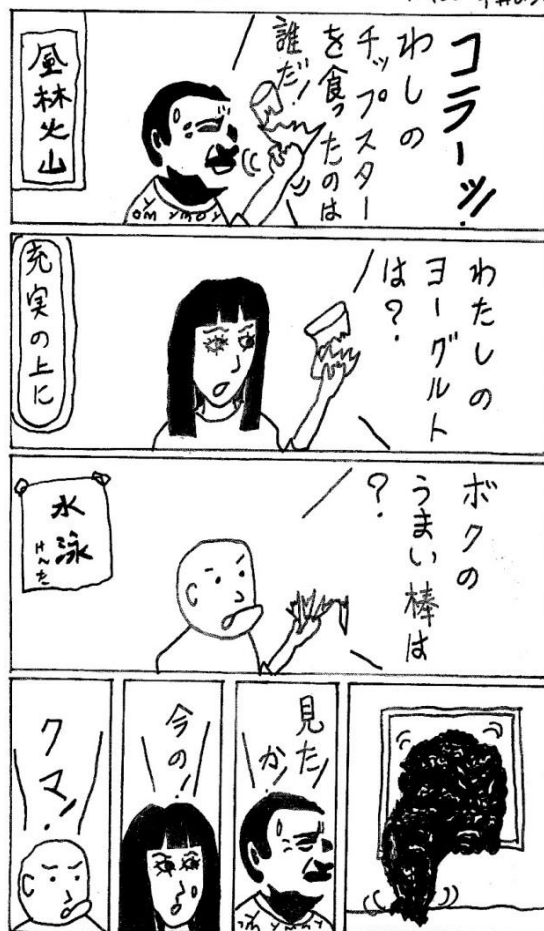 コラーッ!
わしの
チップスター
を食ったのは
誰だ!
風林火山
わたしの
ヨーグルト
は?
充実の上に
ボクの
うまい棒は
?
水泳
けんた
見た
か!
今の!
クマ!